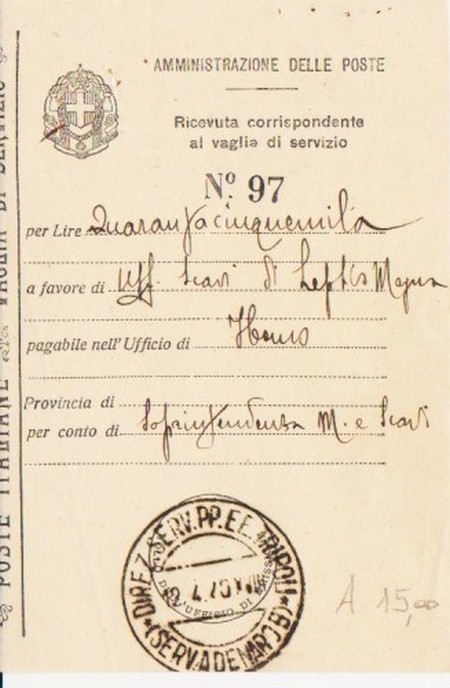 AMMINISTRAZIONE DELLE POSTE
Ricevuta corrispondente
al vaglia di servizio
N.º 97
per Lire Quarantacinquemila
a favore di Uff. Scavi di Leptis Magna
pagabile nell'Ufficio di Homs
Provincia di
per conto di Soprintendenza M. e Scavi
DIREZ. SERV. PP. EE. TRIPOLI
(SERV. A DENARO B)
A 15,00
POSTE ITALIANE VAGLIA DI SERVIZIO